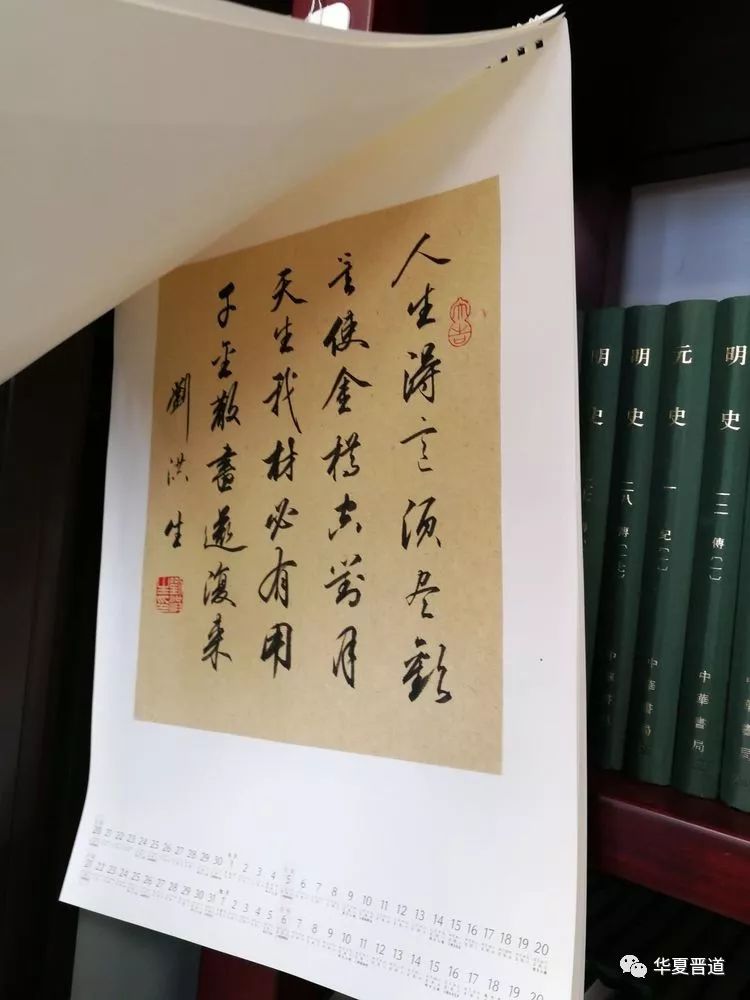 人生得意須尽歡
莫使金樽空對月
天生我材必有用
千金散盡還復来
劉洪生
大吉
明史
明史 二八 傳(一七) 中華書局
元史 一 紀(一) 中華書局
明史 一二 傳(一) 中華書局
20 21 22 23 24 25 26 27 28 29 30 1 2 3 4 5 6 7 8 9 10 11 12 13 14 15 16 17 18 19 20
22 23 24 25 26 27 28 29 30 31 1 2 3 4 5 6 7 8 9 10 11 12 13 14 15 16 17 18 19 20
华夏晋道